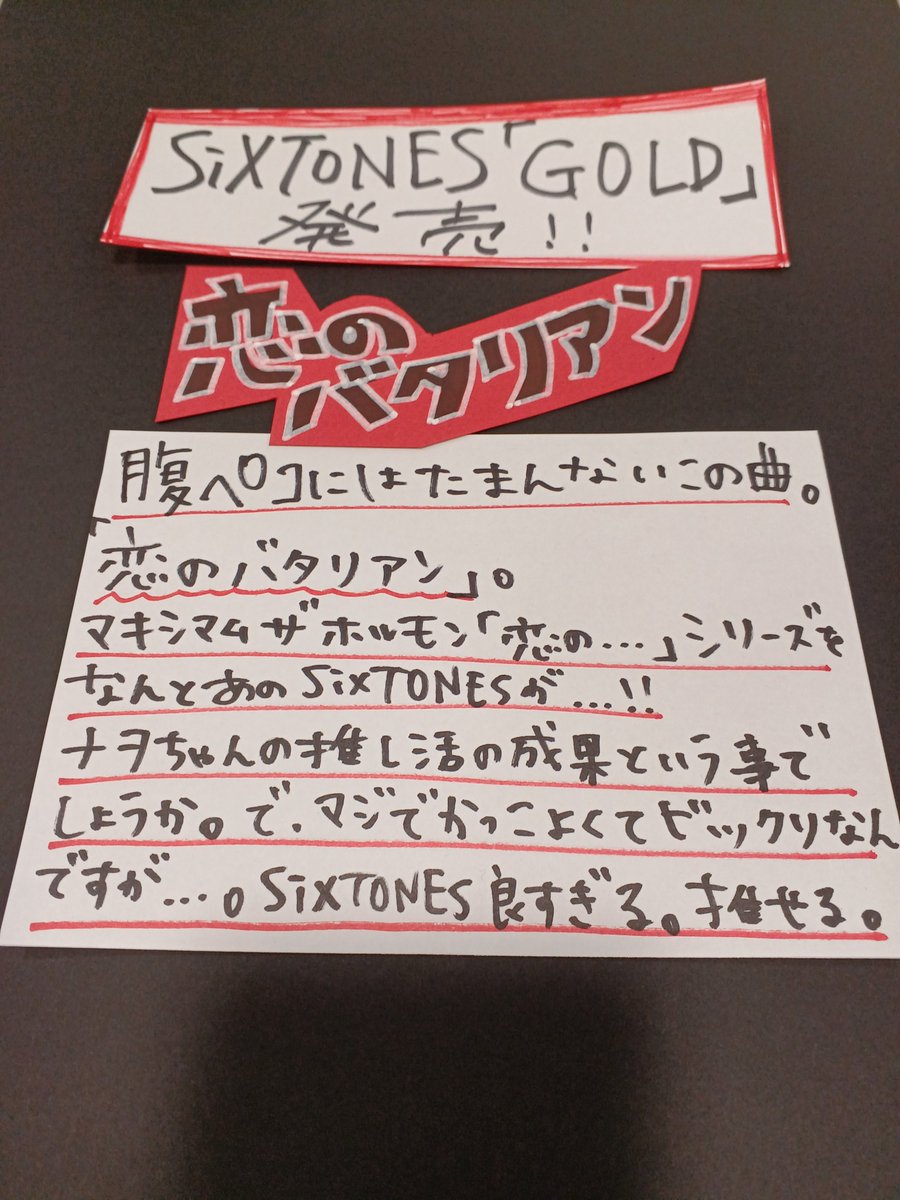 SiXTONES「GOLD」
発売!!
恋の
バタリアン
腹ペコにはたまんないこの曲。
「恋のバタリアン」。
マキシマムザホルモン「恋の…」シリーズを
なんとあのSiXTONESが…!!
ナヲちゃんの推し活の成果という事で
しょうか。で、マジでかっこよくてビックリなん
ですが…。SiXTONES良すぎる。推せる。